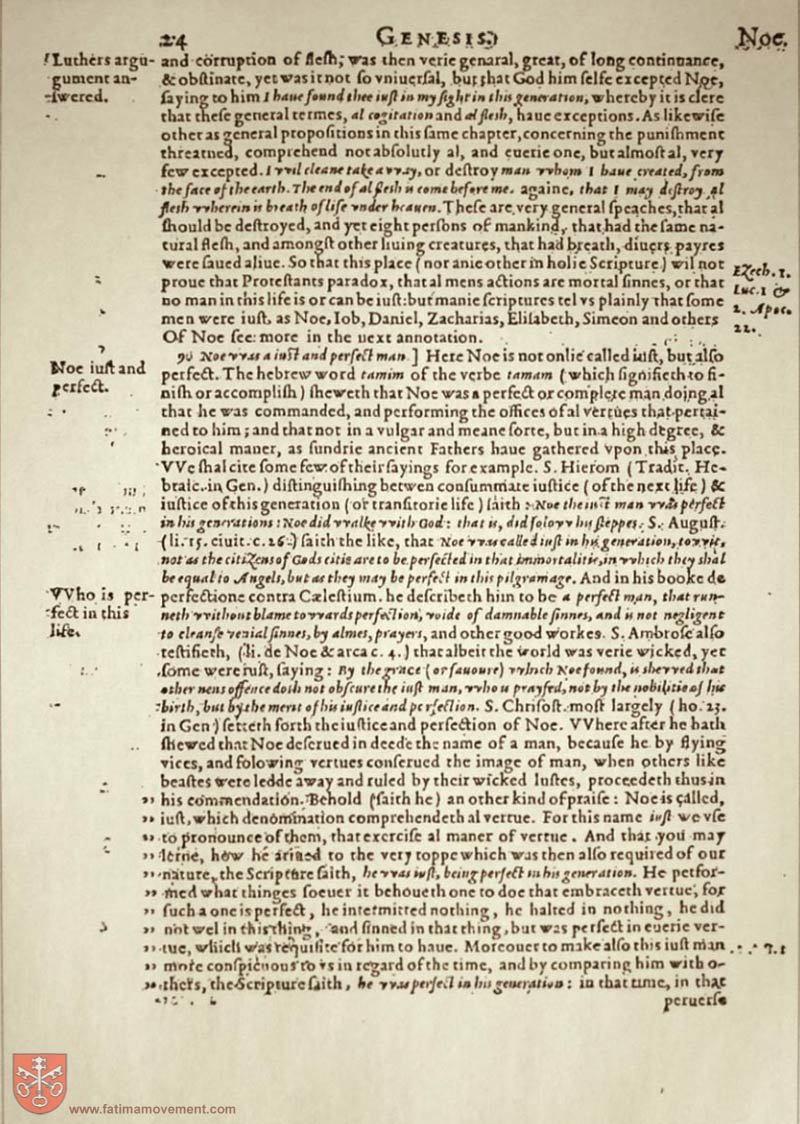 24 GENESIS Noe.
!Luthers argu-
gument an-
swered.
and corruption of flesh; was then verie genaral, great, of long continuance,
& obstinate, yet was it not so vniuersal, but that God him selfe excepted Noe,
saying to him I haue found thee iust in my sight in this generation, whereby it is clere
that these general termes, al cogitation and al flesh, haue exceptions. As likewise
other as general propositions in this same chapter, concerning the punishment
threatned, comprehend not absolutly al, and euerie one, but almost al, very
few excepted. I vvil cleane take avvay, or destroy man vvhom I haue created, from
the face of the earth. The end of al flesh is come before me. againe, that I may destroy al
flesh vvherein is breath of life vnder heauen. These are very general speaches, that al
should be destroyed, and yet eight persons of mankind, that had the same na-
tural flesh, and amongst other liuing creatures, that had breath, diuers payres
were saued aliue. So that this place (nor anie other in holie Scripture) wil not
proue that Protestants paradox, that al mens actions are mortal sinnes, or that
no man in this life is or can be iust: but manie scriptures tel vs plainly that some
men were iust, as Noe, Iob, Daniel, Zacharias, Elisabeth, Simeon and others
Of Noe see more in the next annotation.
Ezech. 1.
Luc. 1 &
2. Apoc.
22.
Noe iust and
perfect.
9. Noe vvas a iust and perfect man.] Here Noe is not onlie called iust, but also
perfect. The hebrew word tamim of the verbe tamam (which signifieth to fi-
nish or accomplish) sheweth that Noe was a perfect or complete man doing al
that he was commanded, and performing the offices of al vertues that pertai-
ned to him; and that not in a vulgar and meane sorte, but in a high degree, &
heroical maner, as sundrie ancient Fathers haue gathered vpon this place.
VVe shal cite some few of their sayings for example. S. Hierom (Tradit. He-
braic. in Gen.) distinguishing betwen consummate iustice (of the next life) &
iustice of this generation (or transitorie life) saith: Noe the iust man vvas perfect
in his generations: Noe did vvalke vvith God: that is, did folovv his steppes. S. August.
(li. 15. ciuit. c. 26.) saith the like, that Noe vvas called iust in his generation, to vvit,
not as the citizens of Gods citie are to be perfected in that immortalitie, in vvhich they shal
be equal to Angels, but as they may be perfect in this pilgrimage. And in his booke de
perfectione contra Cælestium. he describeth him to be a perfect man, that run-
neth vvithout blame tovvards perfection, voide of damnable sinnes, and is not negligent
to cleanse venial sinnes, by almes, prayers, and other good workes. S. Ambrose also
testifieth, (li. de Noe & arca c. 4.) that albeit the world was verie wicked, yet
some were iust, saying: By the grace (or fauoure) vvhich Noe found, is shevved that
other mens offence doth not obscure the iust man, vvho is praysed, not by the nobilitie of his
birth, but by the merit of his iustice and perfection. S. Chrisost. most largely (ho. 23.
in Gen) setteth forth the iustice and perfection of Noe. VVhere after he hath
shewed that Noe deserued in deede the name of a man, because he by flying
vices, and folowing vertues conserued the image of man, when others like
beastes were ledde away and ruled by their wicked lustes, proceedeth thus in
VVho is per-
fect in this
life.
,, his commendation. Behold (saith he) an other kind of praise: Noe is called,
,, iust, which denomination comprehendeth al vertue. For this name iust we vse
,, to pronounce of them, that exercise al maner of vertue. And that you may
,, lerne, how he ariued to the very toppe which was then also required of our
,, nature, the Scripture saith, he vvas iust, being perfect in his generation. He perfor-
,, med what thinges soeuer it behoueth one to doe that embraceth vertue, for
,, such a one is perfect, he intermitted nothing, he halted in nothing, he did
,, not wel in this thing, and sinned in that thing, but was perfect in euerie ver-
,, tue, which was requisite for him to haue. Moreouer to make also this iust man
,, more conspicuous to vs in regard of the time, and by comparing him with o-
,, thers, the Scripture saith, he vvas perfect in his generation: in that time, in that
peruerse
www.fatimamovement.com